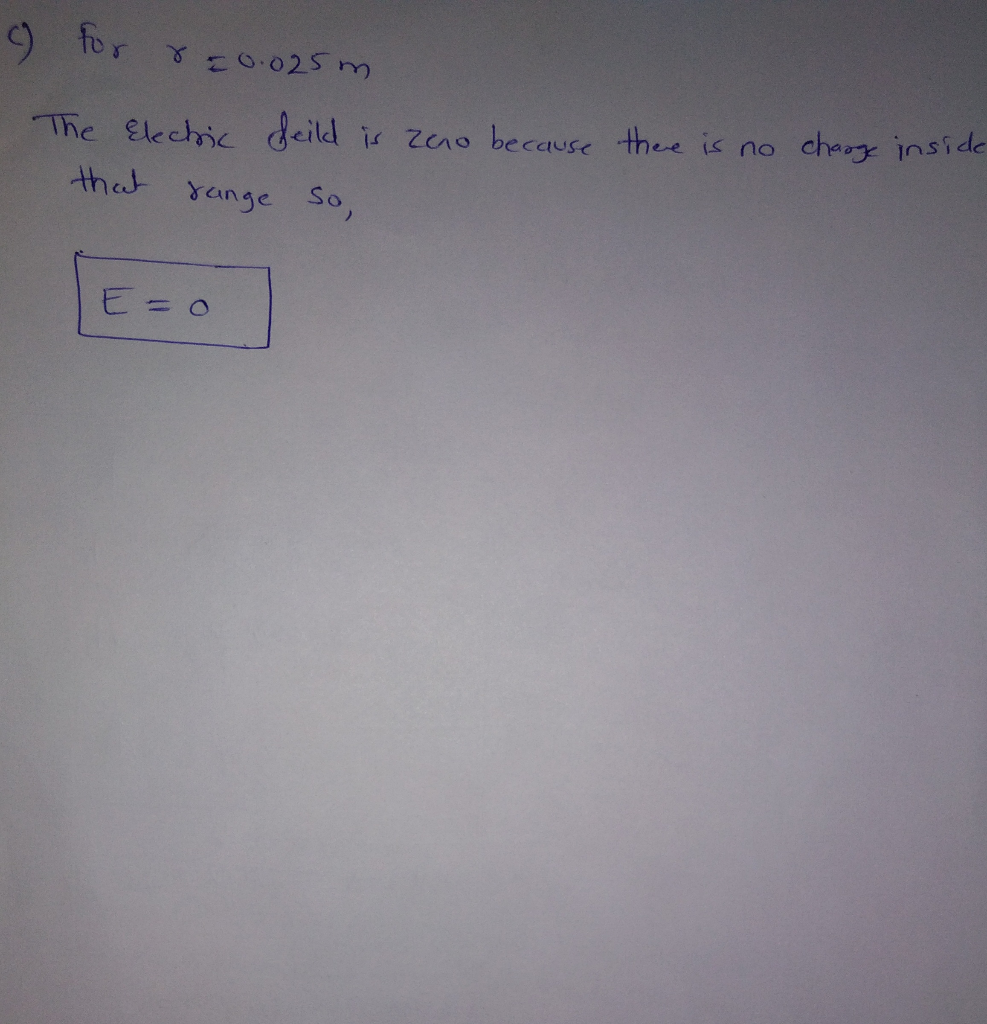 c) for r = 0.025 m
The Electric feild is zero because there is no charge inside
that range so,
E = 0